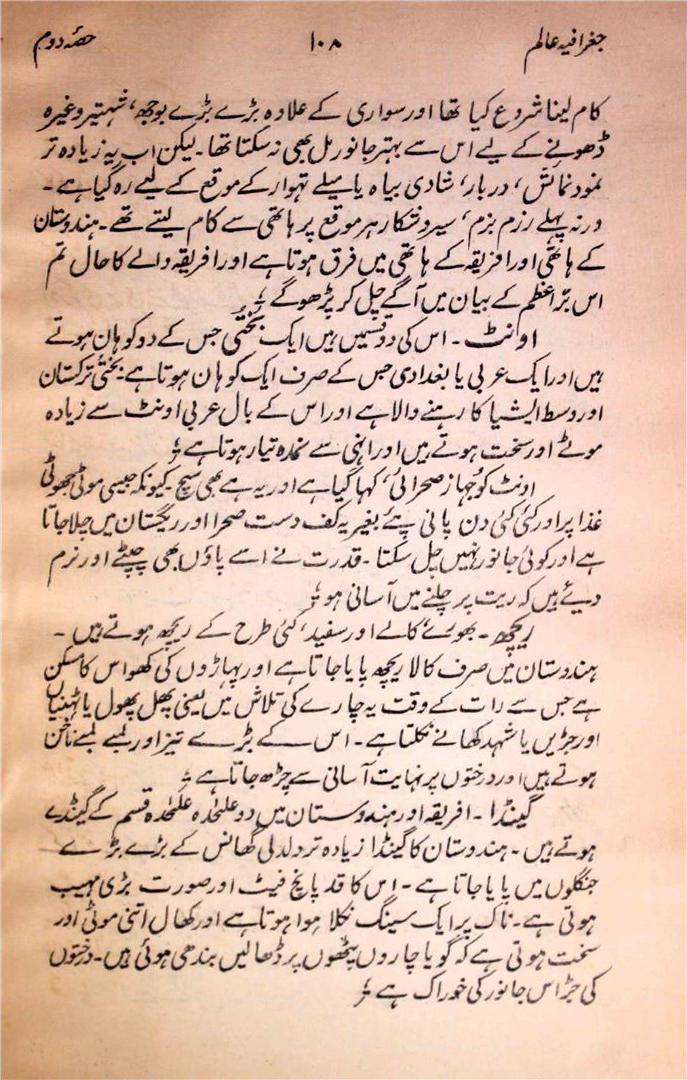 جغرافیہ عالم ۱۰۸ حصّہ دوم
کام لینا شروع کیا تھا اور سواری کے علاوہ بڑے بڑے بوجھ، شہتیر وغیرہ
ڈھونے کے لیے اس سے بہتر جانور مل بھی نہ سکتا تھا۔ لیکن اب یہ زیادہ تر
نمود نمائش، دربار، شادی بیاہ یا میلے تہوار کے موقع کے لیے رہ گیا ہے۔
ورنہ پہلے رزم بزم، سیر و شکار ہر موقع پر ہاتھی سے کام لیتے تھے۔ ہندوستان
کے ہاتھی اور افریقہ کے ہاتھی میں فرق ہوتا ہے اور افریقہ والے کا حال تم
اس برّاعظم کے بیان میں آگے چل کر پڑھوگے ؛
اونٹ۔ اس کی دو قسمیں ہیں ایک بختی جس کے دو کوہان ہوتے
ہیں اور ایک عربی یا بغدادی جس کے صرف ایک کوہان ہوتا ہے۔ بختی ترکستان
اور وسط ایشیا کا رہنے والا ہے اور اس کے بال عربی اونٹ سے زیادہ
موٹے اور سخت ہوتے ہیں اور انہی سے نمدہ تیار ہوتا ہے ؛
اونٹ کو ’جہاز صحرائی‘ کہا گیا ہے اور یہ ہے بھی سچ۔ کیونکہ جیسی موٹی جھوٹی
غذا پر اور کئی کئی دن پانی پئے بغیر یہ کف دست صحرا اور ریگستان میں چلا جاتا
ہے اور کوئی جانور نہیں چل سکتا۔ قدرت نے اسے پاؤں بھی چپٹے اور نرم
دیے ہیں کہ ریت پر چلنے میں آسانی ہو ؛
ریچھ۔ بھورے کالے اور سفید، کئی طرح کے ریچھ ہوتے ہیں۔
ہندوستان میں صرف کالا ریچھ پایا جاتا ہے اور پہاڑوں کی کھو اس کا مسکن
ہے جس سے رات کے وقت یہ چارے کی تلاش میں یعنی پھل پھول یا ٹہنیاں
اور جڑیں یا شہد کھانے نکلتا ہے۔ اس کے بڑے تیز اور لمبے لمبے ناخن
ہوتے ہیں اور درختوں پر نہایت آسانی سے چڑھ جاتا ہے ؛
گینڈا۔ افریقہ اور ہندوستان میں دو علٰحدہ علٰحدہ قسم کے گینڈے
ہوتے ہیں۔ ہندوستان کا گینڈا زیادہ تر دلدلی گھانس کے بڑے بڑے
جنگلوں میں پایا جاتا ہے۔ اس کا قد پانچ فیٹ اور صورت بڑی مہیب
ہوتی ہے۔ ناک پر ایک سینگ نکلا ہوا ہوتا ہے اور کھال اتنی موٹی اور
سخت ہوتی ہے کہ گویا چاروں پٹھوں پر ڈھالیں بندھی ہوئی ہیں۔ درختوں
کی جڑ اس جانور کی خوراک ہے ؛